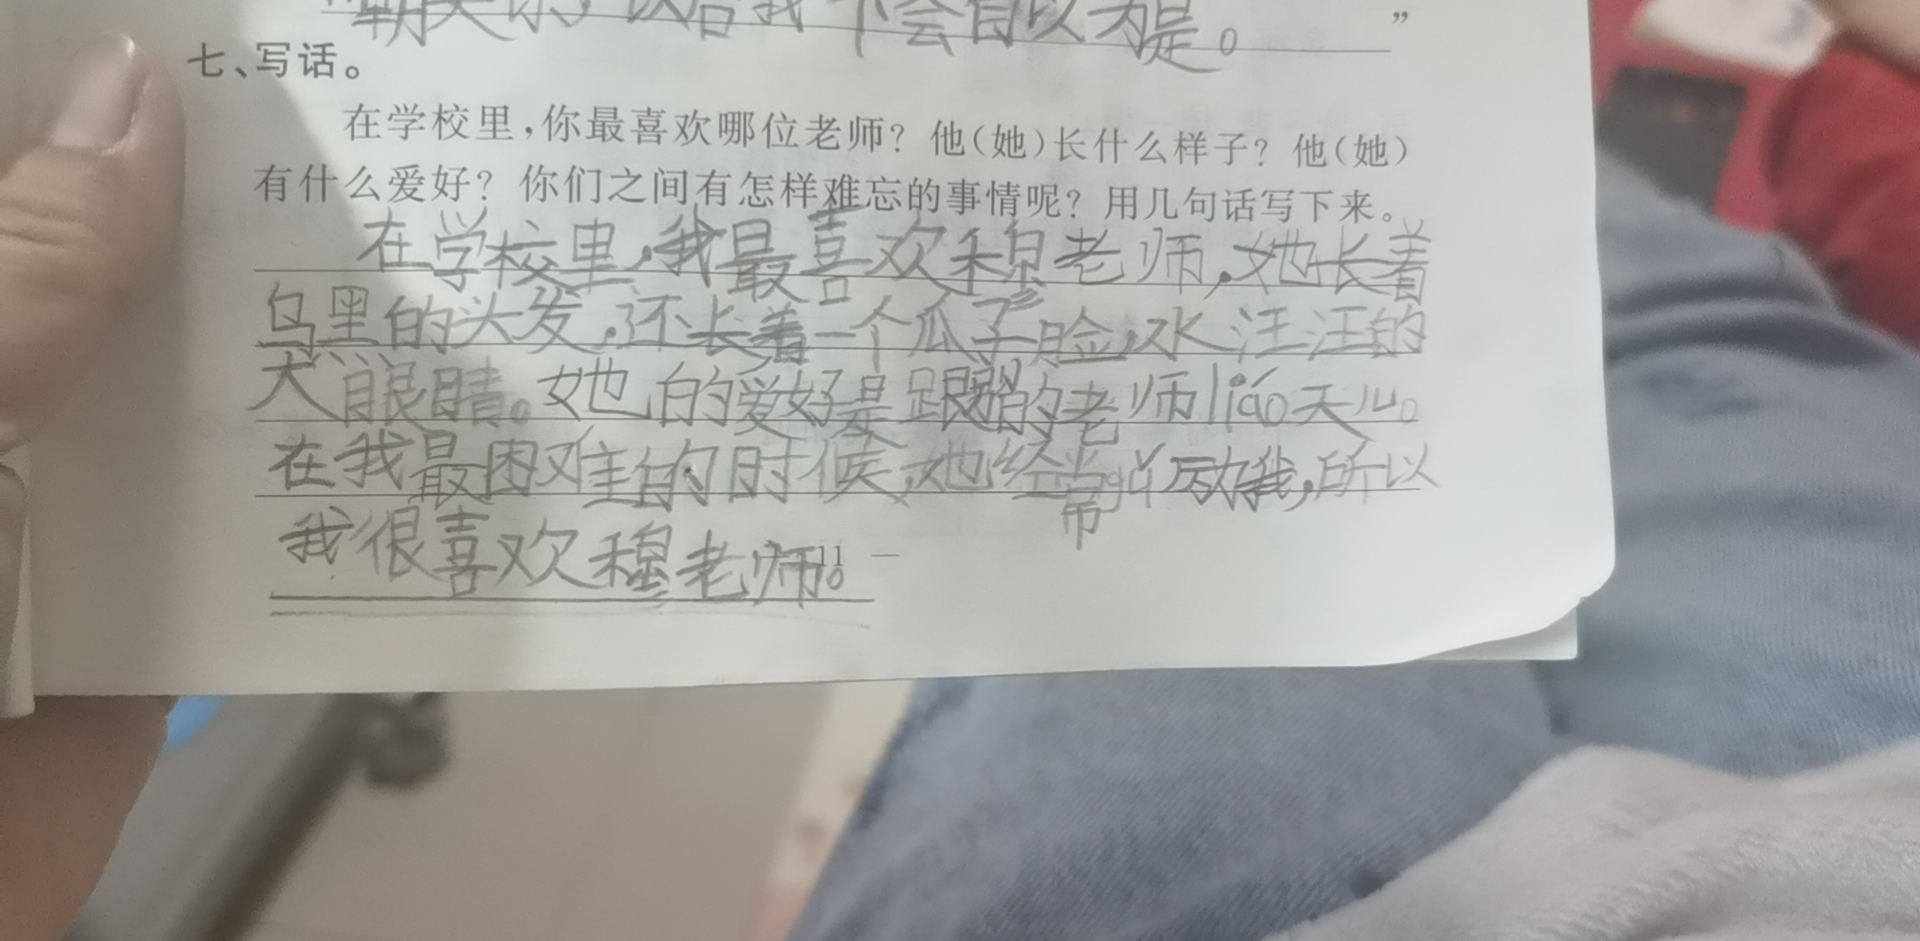 朝笑你，以后我不会自以为是。”
七、写话。
在学校里，你最喜欢哪位老师？他（她）长什么样子？他（她）
有什么爱好？你们之间有怎样难忘的事情呢？用几句话写下来。
在学校里，我最喜欢穆老师，她长着
乌黑的头发，还长着一个瓜子脸，水汪汪的
大眼睛。她的爱好是跟的老师liáo天儿。
在我最困难的时候，她经常gǔ厉励我，所以
我很喜欢穆老师。
11 —